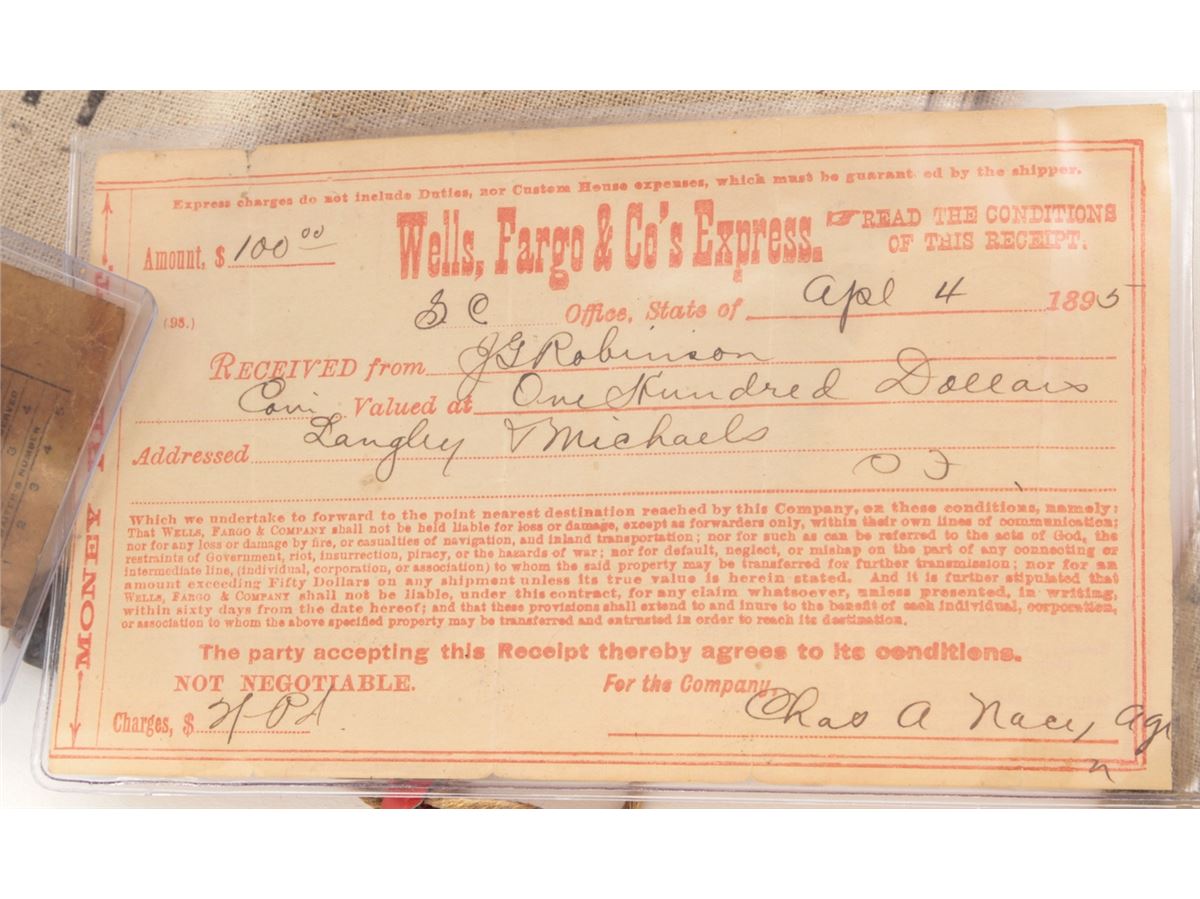 Express charges do not include Duties, nor Custom House expenses, which must be guarant ed by the shipper.
Amount, $ 100 00
Wells, Fargo & Co's Express.
READ THE CONDITIONS
OF THIS RECEIPT.
S C Office, State of Apl 4 1895
(95.)
RECEIVED from J G Robinson
Coin Valued at One Hundred Dollars
Addressed Langley & Michaels
S F
Which we undertake to forward to the point nearest destination reached by this Company, on these conditions, namely:
That WELLS, FARGO & COMPANY shall not be held liable for loss or damage, except as forwarders only, within their own lines of communication;
nor for any loss or damage by fire, or casualties of navigation, and inland transportation; nor for such as can be referred to the acts of God, the
restraints of Government, riot, insurrection, piracy, or the hazards of war; nor for default, neglect, or mishap on the part of any connecting or
intermediate line, (individual, corporation, or association) to whom the said property may be transferred for further transmission; nor for an
amount exceeding Fifty Dollars on any shipment unless its true value is herein stated. And it is further stipulated that
WELLS, FARGO & COMPANY shall not be liable, under this contract, for any claim whatsoever, unless presented, in writing,
within sixty days from the date hereof; and that these provisions shall extend to and inure to the benefit of each individual, corporation,
or association to whom the above specified property may be transferred and entrusted in order to reach its destination.
The party accepting this Receipt thereby agrees to its conditions.
NOT NEGOTIABLE.
For the Company,
Charges, $ Pd
Chas A Nacey Agt
MONEY
NUMBER
1 2 3 4 5
3 4